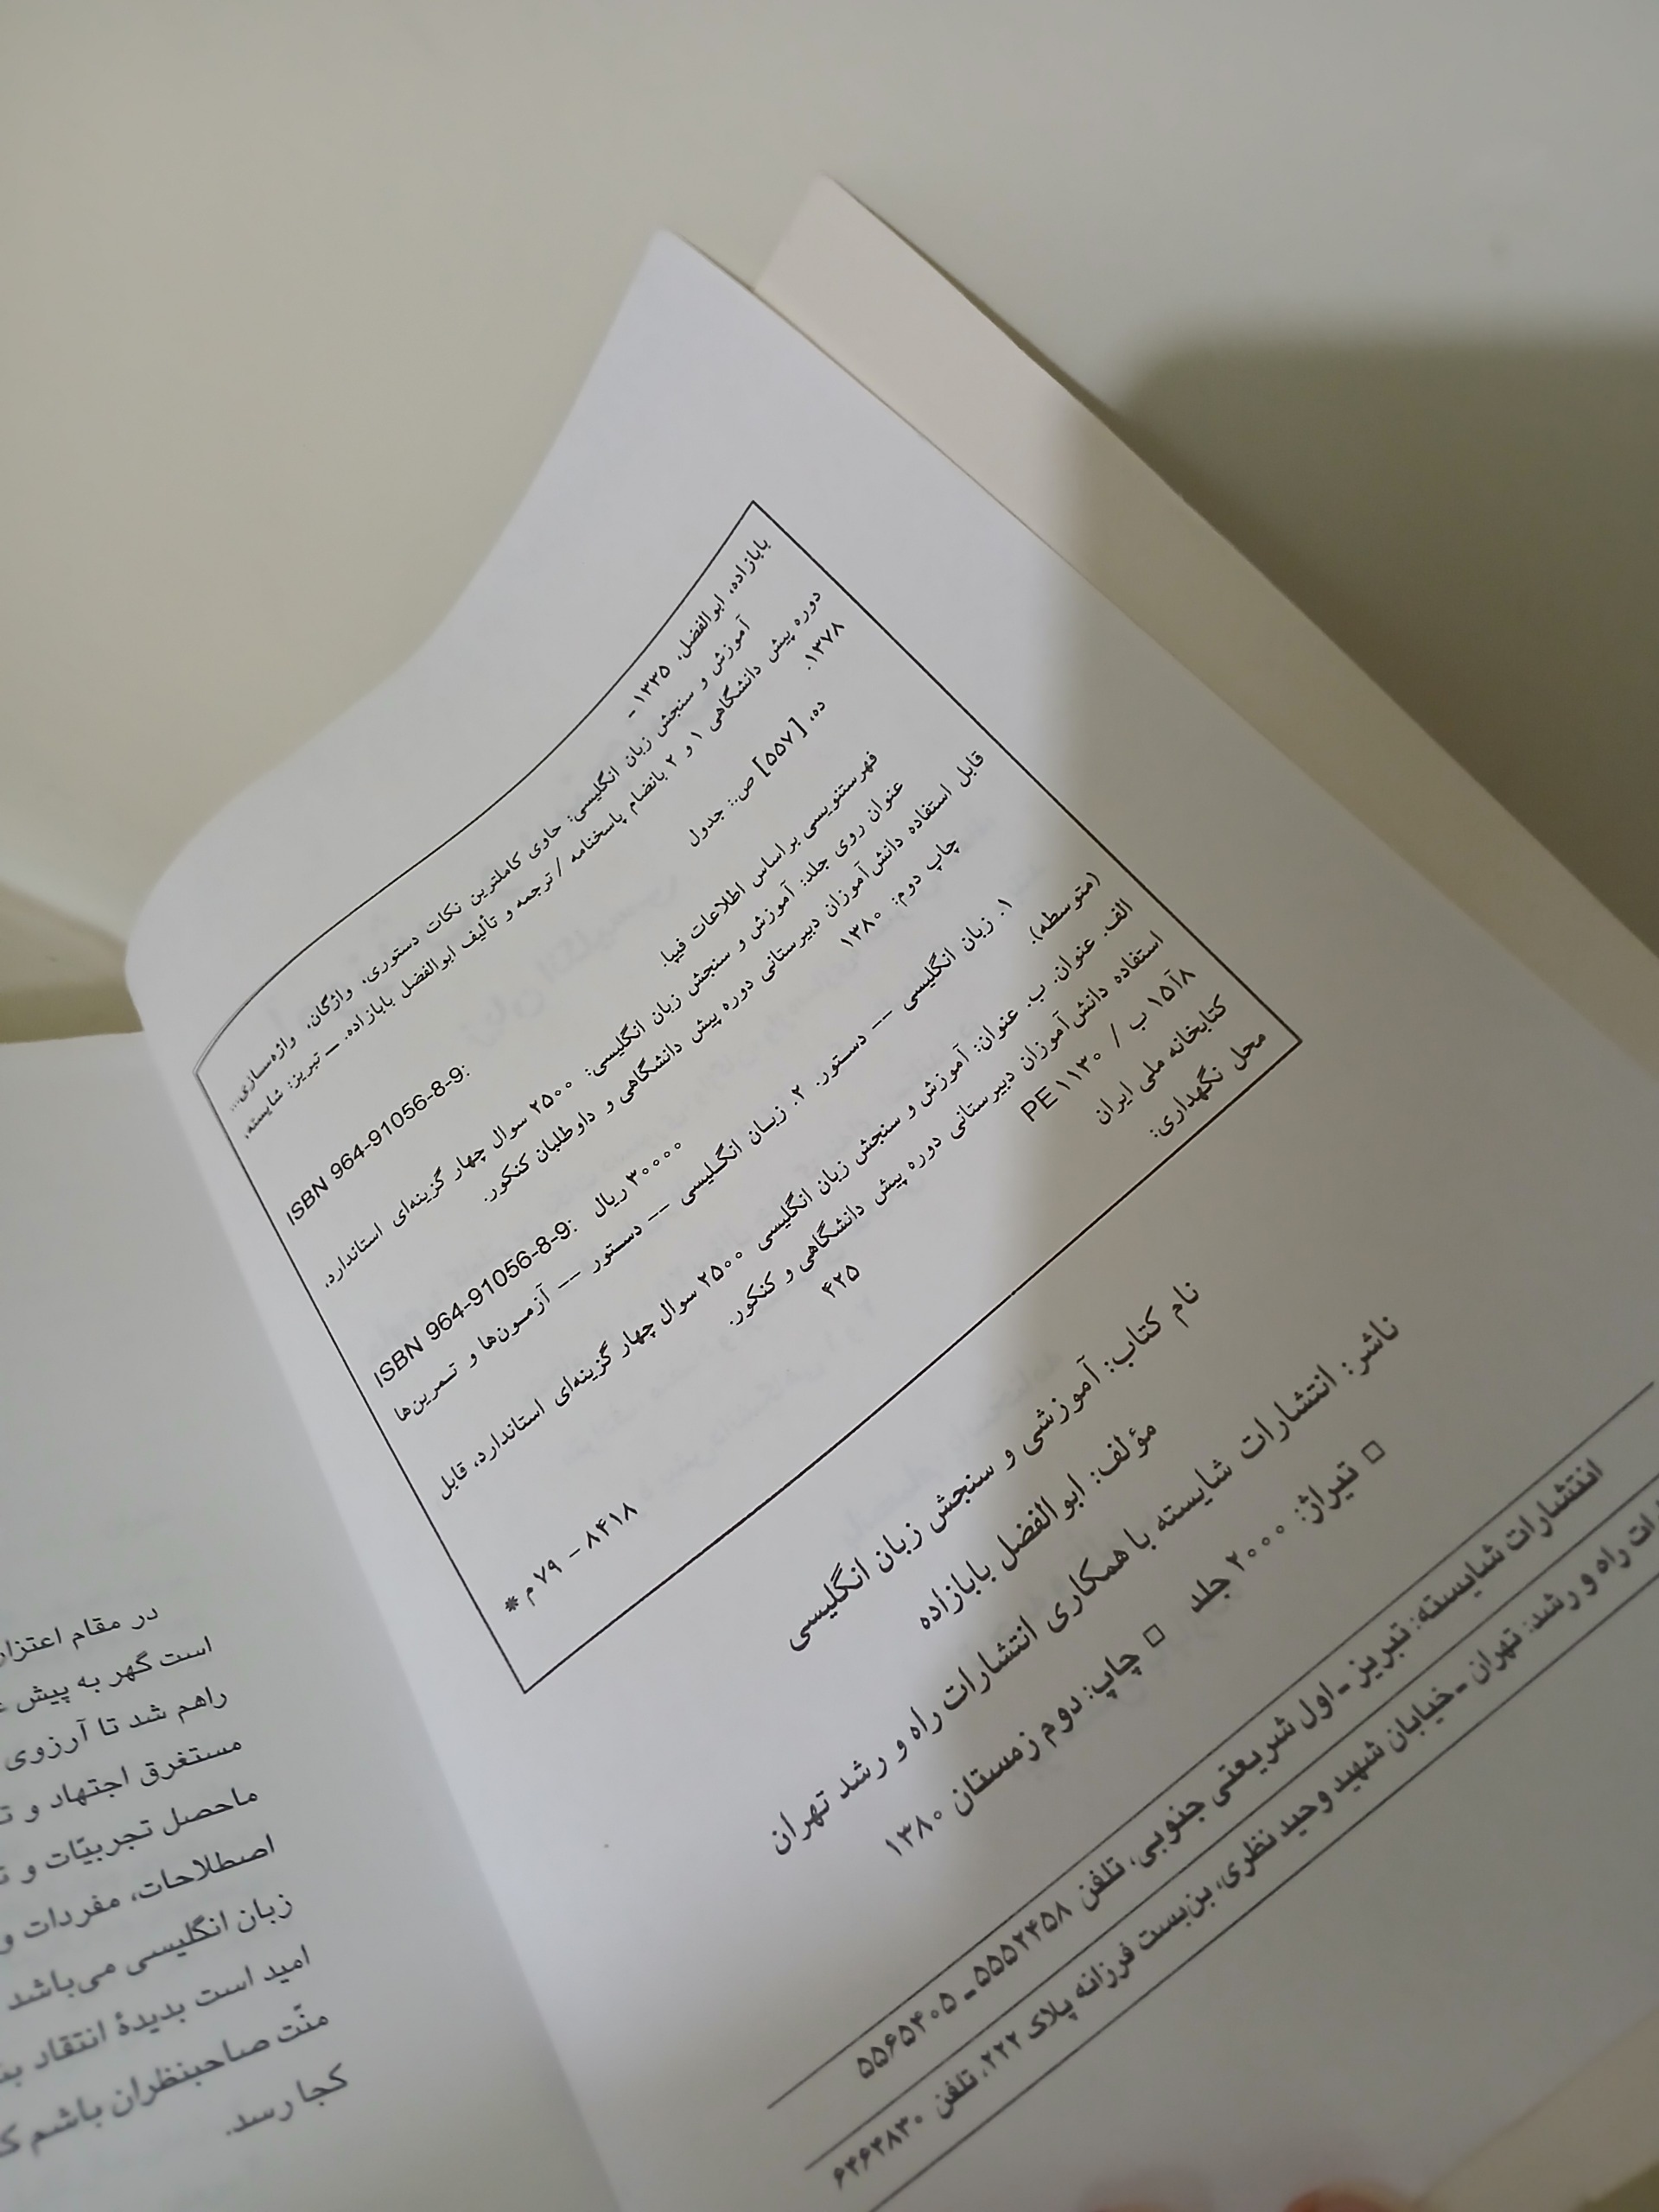 بابازاده، ابوالفضل، ۱۳۳۵ -
آموزش و سنجش زبان انگلیسی: حاوی کاملترین نکات دستوری، واژگان، واژه‌سازی...
دوره پیش دانشگاهی ۱ و ۲ بانضام پاسخنامه / ترجمه و تألیف ابوالفضل بابازاده. — تبریز: شایسته،
۱۳۷۸.
ده، [۵۵۷] ص.: جدول
ISBN 964-91056-8-9:
فهرستنویسی براساس اطلاعات فیپا.
عنوان روی جلد: آموزش و سنجش زبان انگلیسی: ۲۵۰۰ سوال چهار گزینه‌ای استاندارد،
قابل استفاده دانش‌آموزان دبیرستانی دوره پیش دانشگاهی و داوطلبان کنکور.
چاپ دوم: ۱۳۸۰
ISBN 964-91056-8-9: ۳۰۰۰۰ ریال
۱. زبان انگلیسی -- دستور. ۲. زبان انگلیسی -- دستور -- آزمون‌ها و تمرین‌ها
(متوسطه).
الف. عنوان. ب. عنوان: آموزش و سنجش زبان انگلیسی ۲۵۰۰ سوال چهار گزینه‌ای استاندارد، قابل
استفاده دانش‌آموزان دبیرستانی دوره پیش دانشگاهی و کنکور.
۸آ۱۵ ب / PE ۱۱۳۰
۴۲۵
کتابخانه ملی ایران
۸۴۱۸ – ۷۹ م *
محل نگهداری:
نام کتاب: آموزشی و سنجش زبان انگلیسی
مؤلف: ابوالفضل بابازاده
ناشر: انتشارات شایسته با همکاری انتشارات راه و رشد تهران
□ تیراژ: ۲۰۰۰ جلد □ چاپ: دوم زمستان ۱۳۸۰
انتشارات شایسته: تبریز - اول شریعتی جنوبی، تلفن ۵۵۵۲۴۵۸ - ۵۵۶۵۴۰۵
ات راه و رشد: تهران - خیابان شهید وحید نظری، بن‌بست فرزانه پلاک ۲۲۲، تلفن ۶۴۶۴۸۳۰
در مقام اعتزار
است گهر به پیش
راهم شد تا آرزوی
مستغرق اجتهاد و
ماحصل تجربیّات و
اصطلاحات، مفردات و
زبان انگلیسی می‌باشد
امید است بدیدهٔ انتقاد
منّت صاحبنظران باشم
کجا رسد.